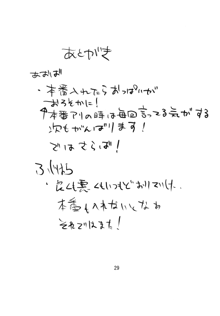 あとがき
あおば
・本番入れたらおっぱいが
おろそかに!
↑本番アリの時は毎回言ってる気がする
次もがんばります!
ではさらば!
・良くも悪くもいつもどおりでした..
本番も入れないとなぁ
それではまた!
29